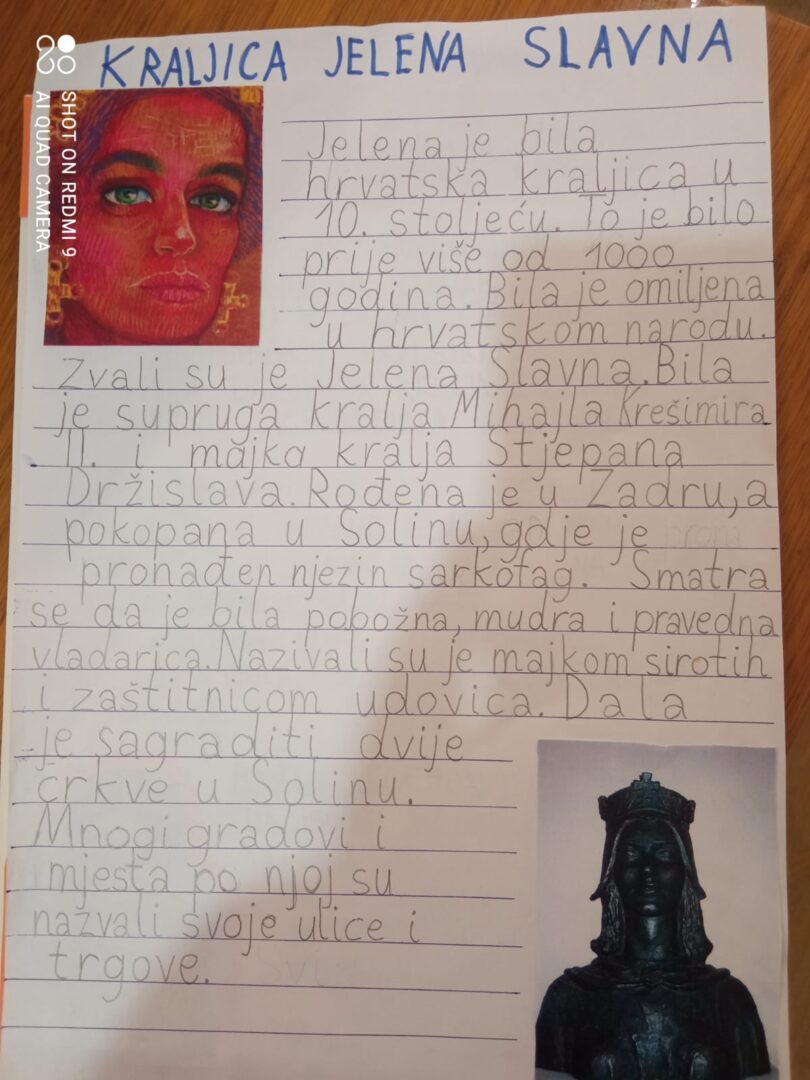 KRALJICA JELENA SLAVNA
Jelena je bila
hrvatska kraljica u
10. stoljeću. To je bilo
prije više od 1000
godina. Bila je omiljena
u hrvatskom narodu.
Zvali su je Jelena Slavna. Bila
je supruga kralja Mihajla Krešimira
II. i majka kralja Stjepana
Držislava. Rođena je u Zadru, a
pokopana u Solinu, gdje je
pronađen njezin sarkofag. Smatra
se da je bila pobožna, mudra i pravedna
vladarica. Nazivali su je majkom sirotih
i zaštitnicom udovica. Dala
je sagraditi dvije
crkve u Solinu.
Mnogi gradovi i
mjesta po njoj su
nazvali svoje ulice i
trgove.
SHOT ON REDMI 9
AI QUAD CAMERA